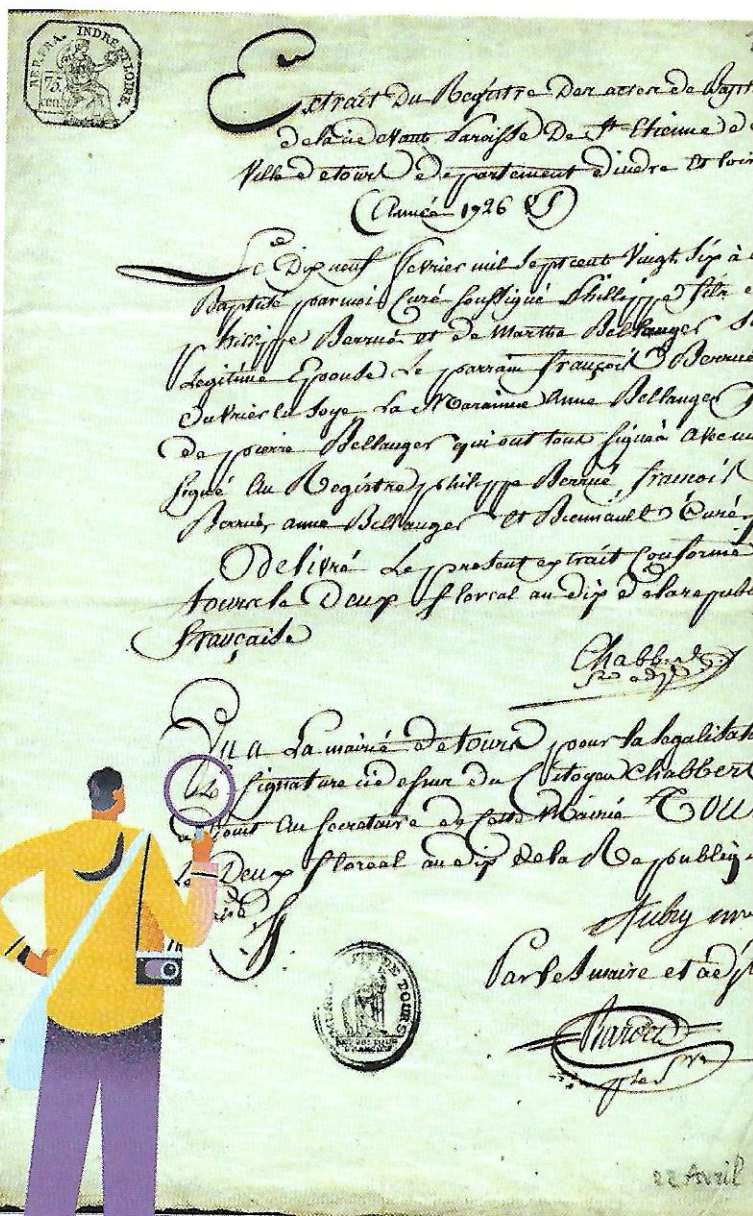 REP. FRA. INDRE ET LOIRE.
75 cen.
Extrait Du Regístre Des actes de Bapt
de la cidevant Paroisse De St Etienne de
Ville de tours departement d'indre Et Loir
Année 1726
Le Dix neuf fevrier mil Sept cent Vingt Six à
Baptisé par moi Curé soussigné Phillippe fils
phillippe Berrué et de Marthe Bellanger
Legitime Epouse Le parrain françois Berrué
Ouvrier en Soye La Maraine Anne Bellanger
De pierre Bellanger qui ont tous signés avec
signé Au Registre philippe Berrué, francois
Berrué anne Bellanger Et Biennault Curé
Delivré Le present extrait Conforme
tours le Deux floreal an dix de la republi
française
Chabbert
Vu a La mairie de tours pour la legalisat
signature ci dessus du Citoyen Chabbert
adjoint Au Secretaire de Cette Mairie TOU
Le Deux floreal an dix De la Republiq
Aubry
Par le maire et adj
Barde
22 Avril